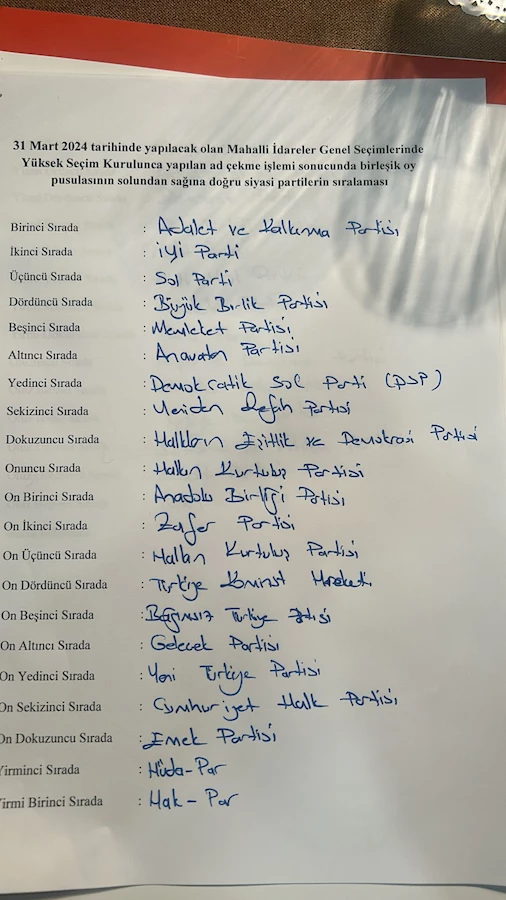 31 Mart 2024 tarihinde yapılacak olan Mahalli İdareler Genel Seçimlerinde
Yüksek Seçim Kurulunca yapılan ad çekme işlemi sonucunda birleşik oy
pusulasının solundan sağına doğru siyasi partilerin sıralaması
Birinci Sırada : Adalet ve Kalkınma Partisi
İkinci Sırada : İYİ Parti
Üçüncü Sırada : Sol Parti
Dördüncü Sırada : Büyük Birlik Partisi
Beşinci Sırada : Memleket Partisi
Altıncı Sırada : Anavatan Partisi
Yedinci Sırada : Demokratik Sol Parti (DSP)
Sekizinci Sırada : Yeniden Refah Partisi
Dokuzuncu Sırada : Halkların Eşitlik ve Demokrasi Partisi
Onuncu Sırada : Halkın Kurtuluş Partisi
On Birinci Sırada : Anadolu Birliği Partisi
On İkinci Sırada : Zafer Partisi
On Üçüncü Sırada : Halkın Kurtuluş Partisi
On Dördüncü Sırada : Türkiye Komünist Hareketi
On Beşinci Sırada : Bağımsız Türkiye Partisi
On Altıncı Sırada : Gelecek Partisi
On Yedinci Sırada : Yeni Türkiye Partisi
On Sekizinci Sırada : Cumhuriyet Halk Partisi
On Dokuzuncu Sırada : Emek Partisi
Yirminci Sırada : Hüda-Par
Yirmi Birinci Sırada : Hak-Par